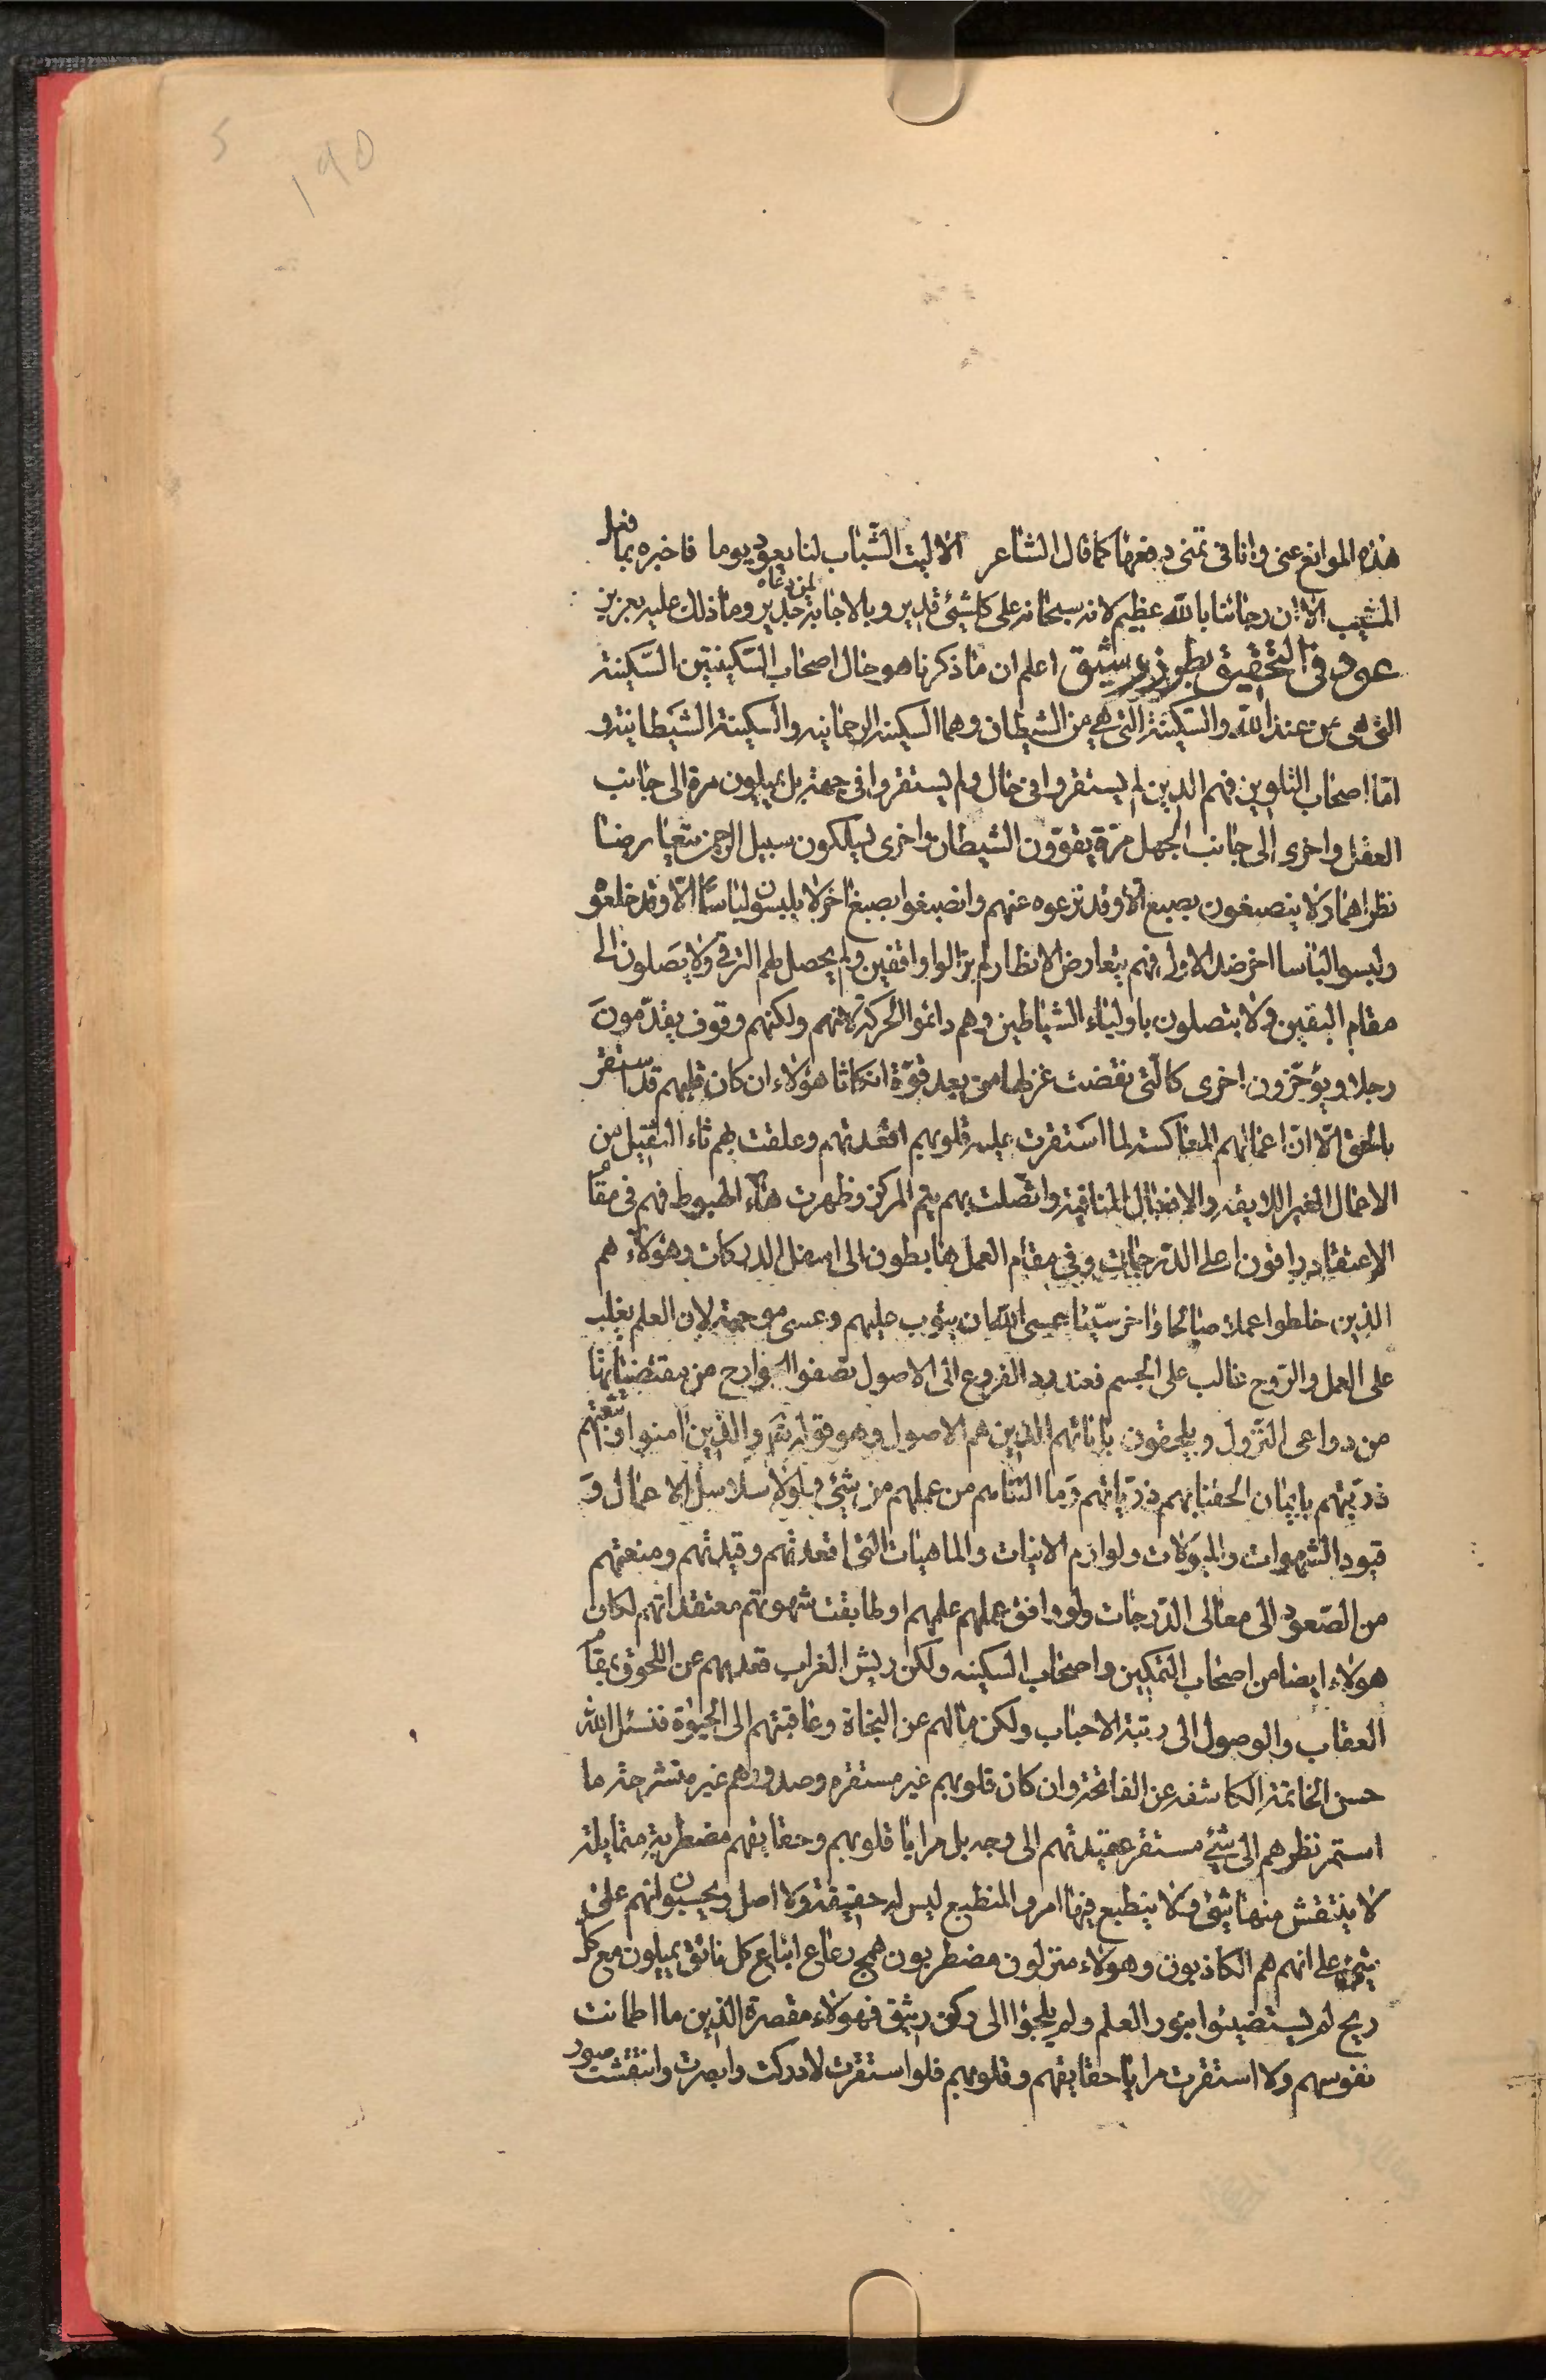 5
190
هذه الموانع عنی وانا فی تمنی دفعها کما قال الشاعر الا لیت الشباب لنا یعود یوما فاخبره بما فعل
المشیب الا ان رجائنا بالله عظیم لانه سبحانه علی کلشیئ قدیر وبالاجابة لمن دعاه جدیر وما ذلک علیه بعزیز
عود فی التحقیق بطور رشیق اعلم ان ما ذکرنا هو حال اصحاب السکینتین السکینة
التی هی من عند الله والسکینة التی هی من الشیطان وهما السکینه الرحمانیه والسکینة الشیطانیة و
امّا اصحاب التلوین فهم الذین لم یستقروا فی حال ولم یستقروا فی جهة بل یمیلون مرة الی جانب
العقل واخری الی جانب الجهل مرّة یقوّون الشیطان واخری یسلکون سبیل الرحمن یتعارضا
نظراهما ولا ینصبغون بصبغ الا وقد نزعوه عنهم وانصبغوا بصبغ اخر لا یلبسون لباسًا الّا وقد خلعوه
ولبسوا لباسا اخر ضد الاول فهم بتعارض الانظار لم یزالوا واقفین ولم یحصل لهم الترقی ولا یصلون الی
مقام الیقین ولا یتصلون باولیاء الشیاطین وهم دائموا الحرکة لانهم ولکنهم وقوف یقدّمون
رجلا ویؤخّرون اخری کالّتی نقضت غزلها من بعد قوّة انکاثا هؤلاء ان کان قلبهم قد استقر
بالحق الّا انّ اعمالهم المعاکسة لما استقرت علیه قلوبهم اقعدتهم وعلقت بهم ثاء الثقیل من
الاعمال الغیر اللایقه والافعال المنافیة واتّصلت بهم میم المرکز وظهرت هاء الهبوط فهم فی مقام
الاعتقاد راقون اعلی الدّرجات وفی مقام العمل هابطون الی اسفل الدرکات وهؤلاء هم
الذین خلطوا عملا صالحا واخر سیّئا عسی الله ان یتوب علیهم وعسی موجبة لان العلم یغلب
علی العمل والرّوح غالب علی الجسم فعند رد الفروع الی الاصول تصفوا الجوارح من مقتضیاتها
من دواعی النّزول ویلحقون بابائهم الذین هم الاصول وهو قوله تعَ والذین امنوا واتّبعتهم
ذرّیتهم بایمان الحقنا بهم ذرّیاتهم وما التناهم من عملهم من شیئ ولولا سلاسل الاعمال و
قیود الشهوات والمیولات ولوازم الانیات والماهیات التی اقعدتهم وقیدتهم ومنعتهم
من الصّعود الی معالی الدّرجات ولو وافق عملهم علمهم او طابقت شهوتهم معتقداتهم لکان
هولاء ایضا من اصحاب التمکین واصحاب السکینه ولکن ریش الغراب قعد بهم عن اللحوق بمقام
العقاب والوصول الی رتبة الاحباب ولکن مالهم عن النجاة وعاقبتهم الی الحیوة فنسئل الله
حسن الخاتمة الکاشفه عن الفاتحة وان کان قلوبهم غیر مستقره وصدورهم غیر منشرحة ما
استمر نظرهم الی شیئ مستقر عقیدتهم الی وجه بل مرایا قلوبهم وحقایقهم مضطربة متمایلة
لا ینتقش منها شیئ ولا ینطبع فیها امر والمنطبع لیس له حقیقة ولا اصل ویحسبون انهم علی
شیئ علی انهم هم الکاذبون وهولاء متزلون مضطربون همج رعاع اتباع کل ناعق یمیلون مع کل
ریح لم یستضیئوا بنور العلم ولم یلجؤا الی رکن وثیق فهولاء مقصرة الذین ما اطمانت
نفوسهم ولا استقرت مرایا حقایقهم وقلوبهم فلو استقرت لادرکت وابصرت وانتقشت صور